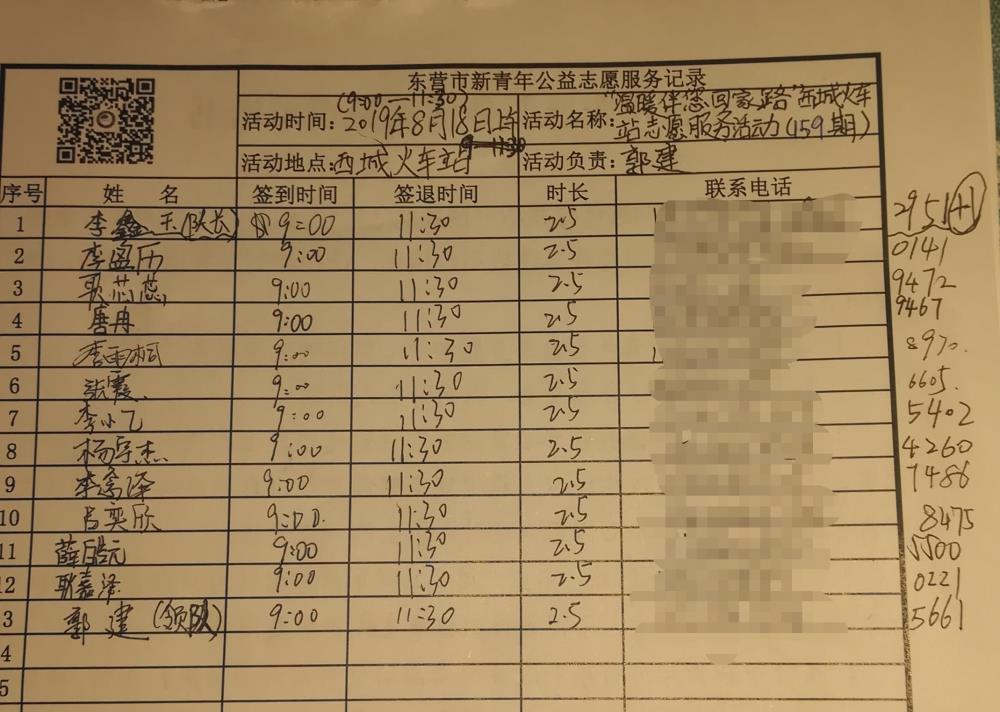 东营市新青年公益志愿服务记录
(9:00 11:30)
活动时间: 2019年8月18日上午 活动名称: "温暖伴您回家路"西城火车
站志愿服务活动(159期)
活动地点: 西城火车站 活动负责: 郭建
序号 姓 名 签到时间 签退时间 时长 联系电话
1 李鑫玉(队长) 9:00 11:30 2.5 2951+1
2 李盈历 9:00 11:30 2.5 0141
3 芯蕊 9:00 11:30 2.5 9472
4 唐冉 9:00 11:30 2.5 9467
5 李雨桐 9:00 11:30 2.5 8970.
6 张霞 9:00 11:30 2.5 6605.
7 李小乙 9:00 11:30 2.5 5402
8 杨宇杰 9:00 11:30 2.5 4260
9 李 泽 9:00 11:30 2.5 7486
10 吕奕欣 9:00. 11:30 2.5 8475
11 薛皓元 9:00 11:30 2.5 5500
12 耿嘉泽 9:00 11:30 2.5 0221
3 郭建(领队) 9:00 11:30 2.5 5661
4
5